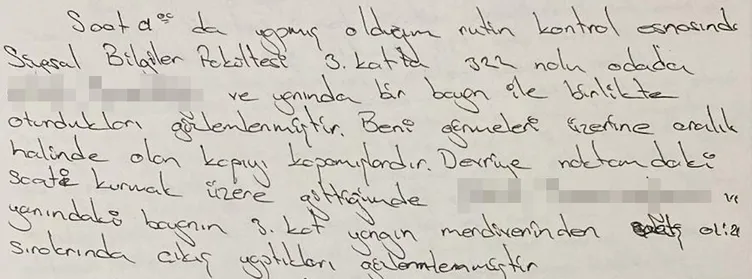 Saat d°° da yapmış olduğum rutin kontrol esnasında
Siyasal Bilgiler Fakültesi 3. katta 322 nolu odada
ve yanında bir bayan ile birlikte
oturdukları gözlemlenmiştir. Beni görmeleri üzerine aralık
halinde olan kapıyı kapamışlardır. Devriye noktamdaki
saati kurmak üzere gittiğimde ve
yanındaki bayanın 3. kat yangın merdiveninden
sıralarında çıkış yaptıkları gözlemlemmiştir